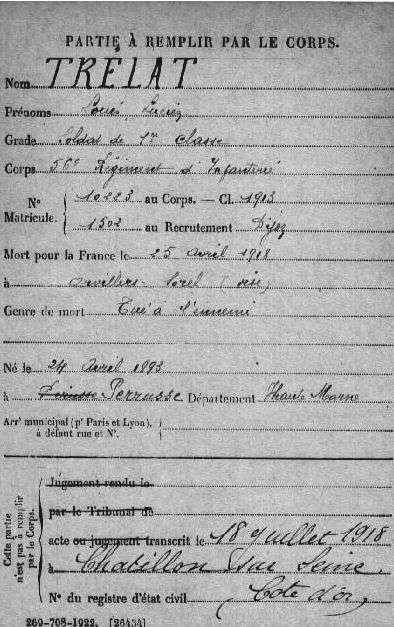 PARTIE À REMPLIR PAR LE CORPS.
Nom TRÉLAT
Prénoms Louis
Grade Soldat de 1re classe
Corps 56e Régiment d'Infanterie
No 10223 au Corps. — Cl. 1913
Matricule. 1502 au Recrutement Dijon
Mort pour la France le 25 avril 1918
à Orvillers-Sorel (Oise)
Genre de mort Tué à l'ennemi
Né le 24 Avril 1893
à Perrusse Département Haute Marne
Arrt municipal (pr Paris et Lyon),
à défaut rue et No.
Cette partie
n'est pas à remplir
par le Corps.
Jugement rendu le
par le Tribunal de
acte ou jugement transcrit le 18 Juillet 1918
à Chatillon sur Seine.
No du registre d'état civil Cote d'or,
269-708-1922. [26434]